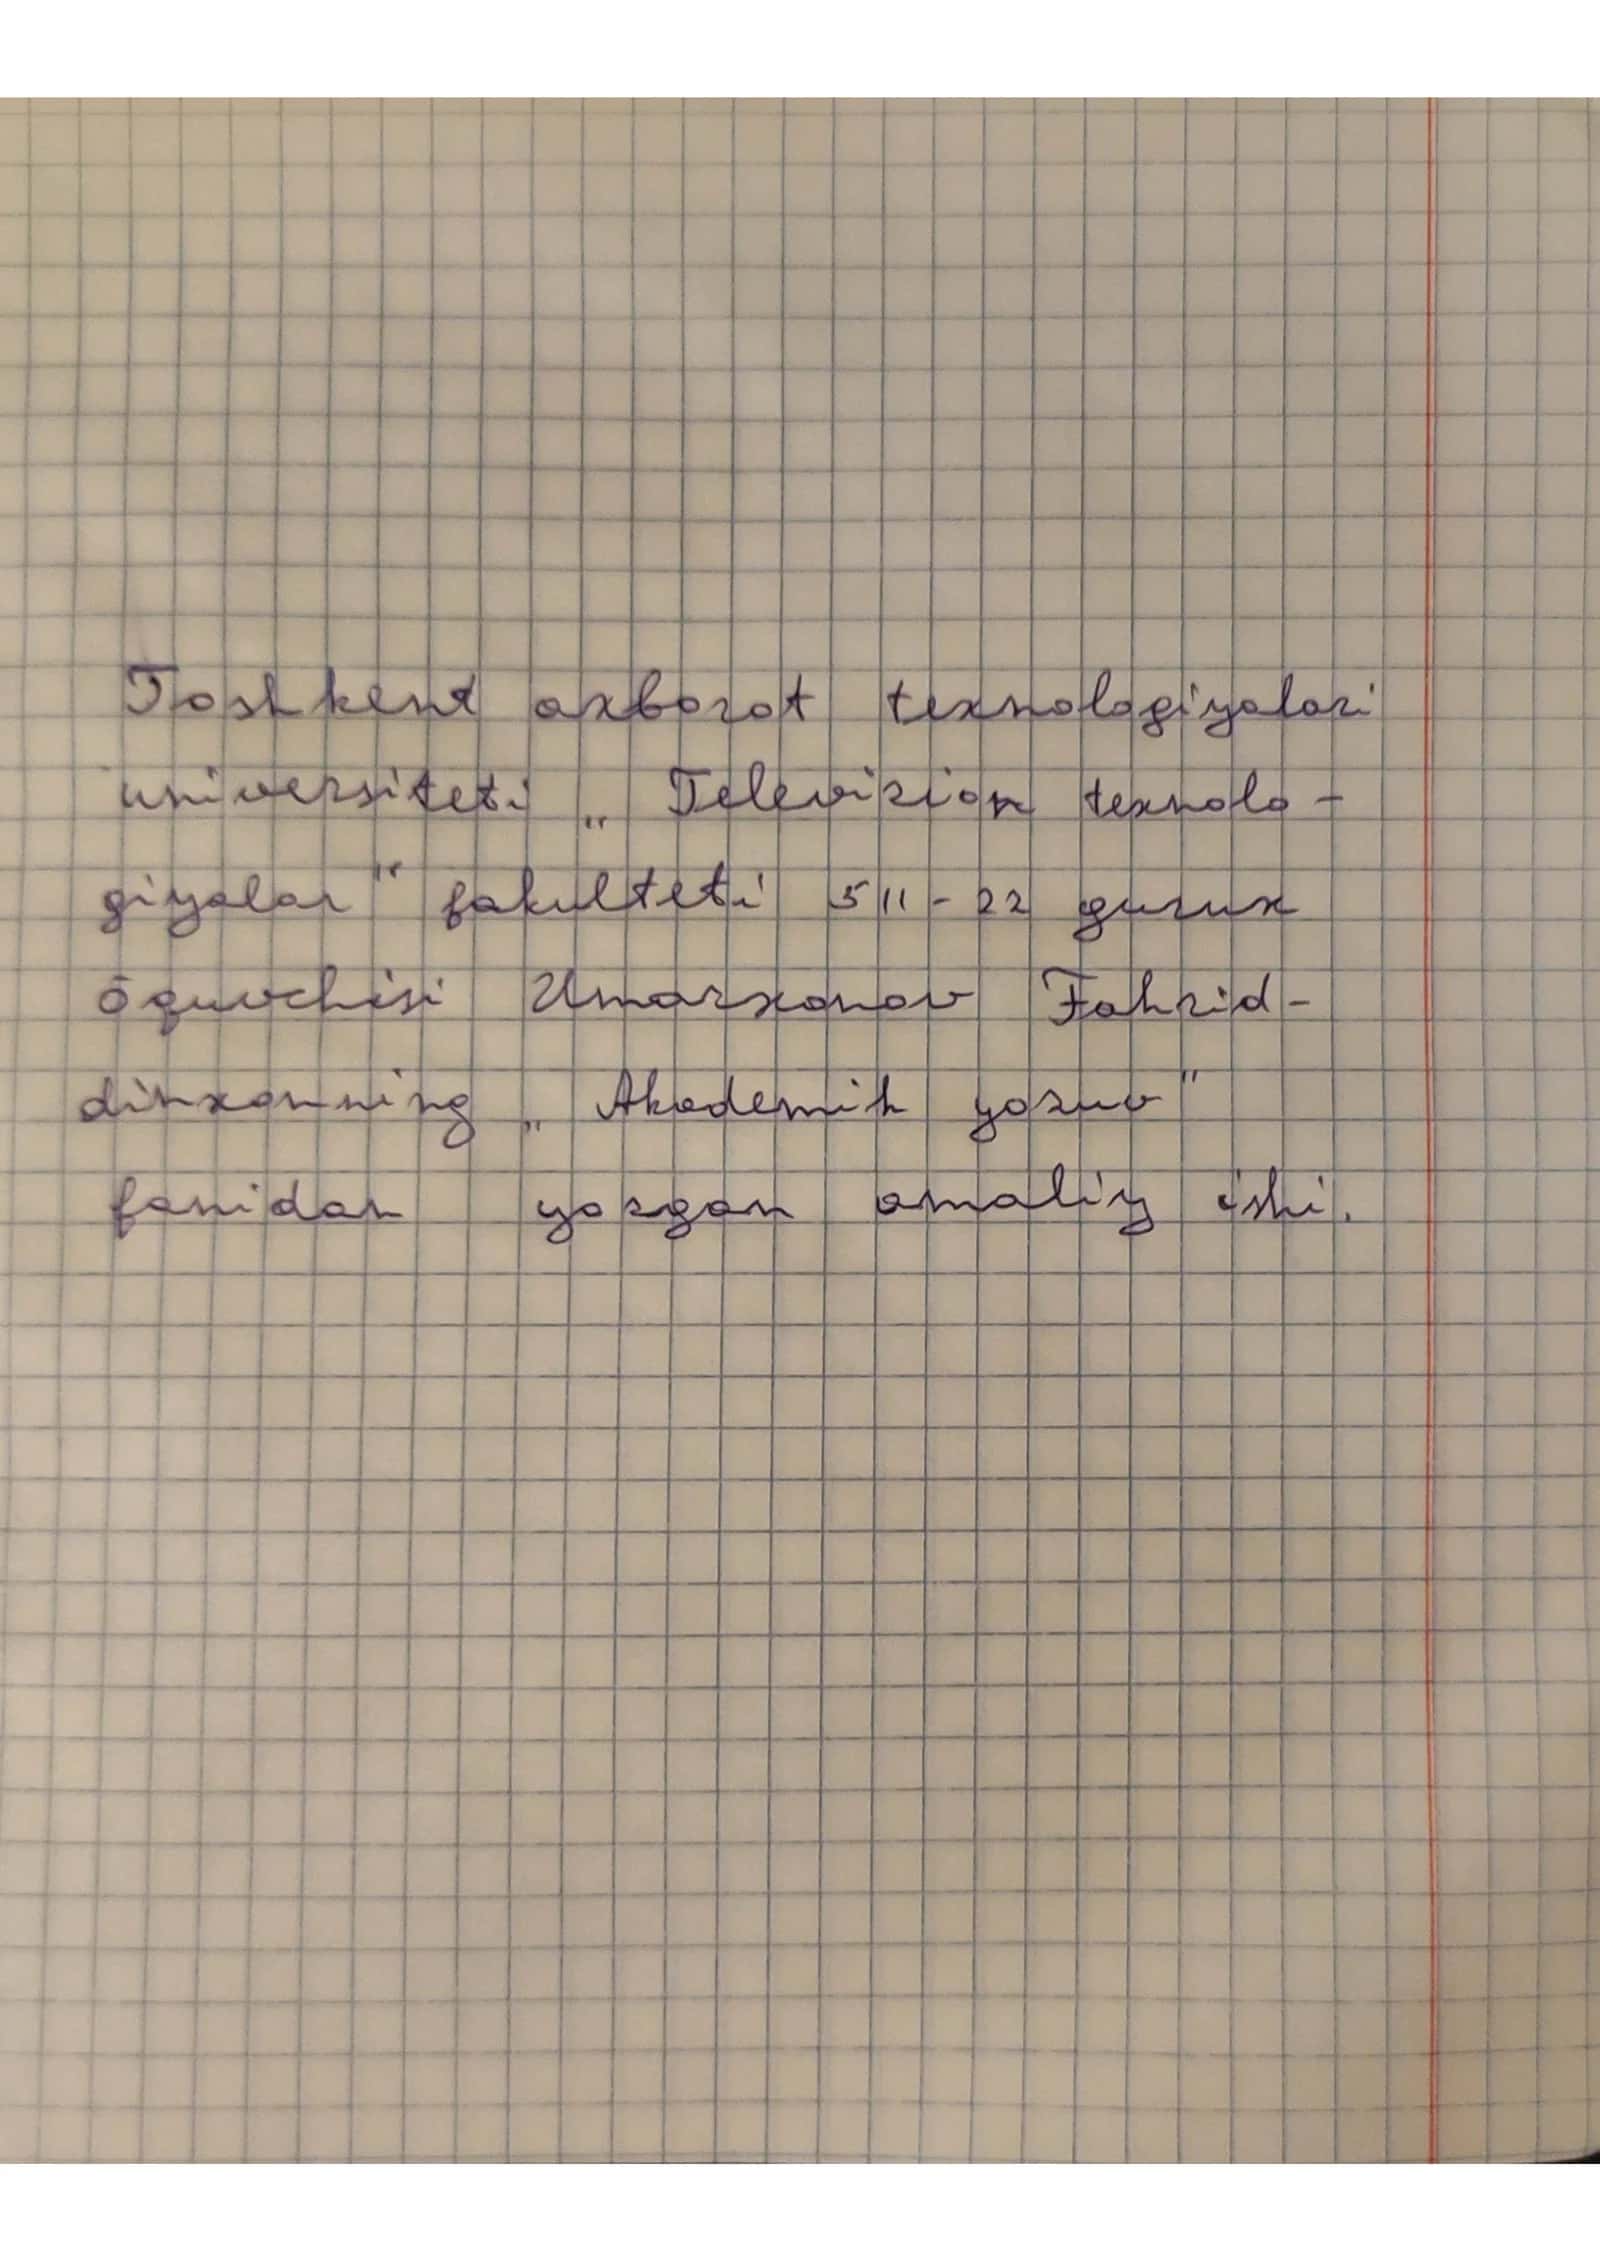 Toshkent axborot texnologiyalari
universiteti „Televizion texnolo-
giyalar" fakulteti 511-22 gurux
ōquvchisi Umarxonov Fahrid-
dinxonning „Akademik yozuv"
fanidan yozgan amaliy ishi.